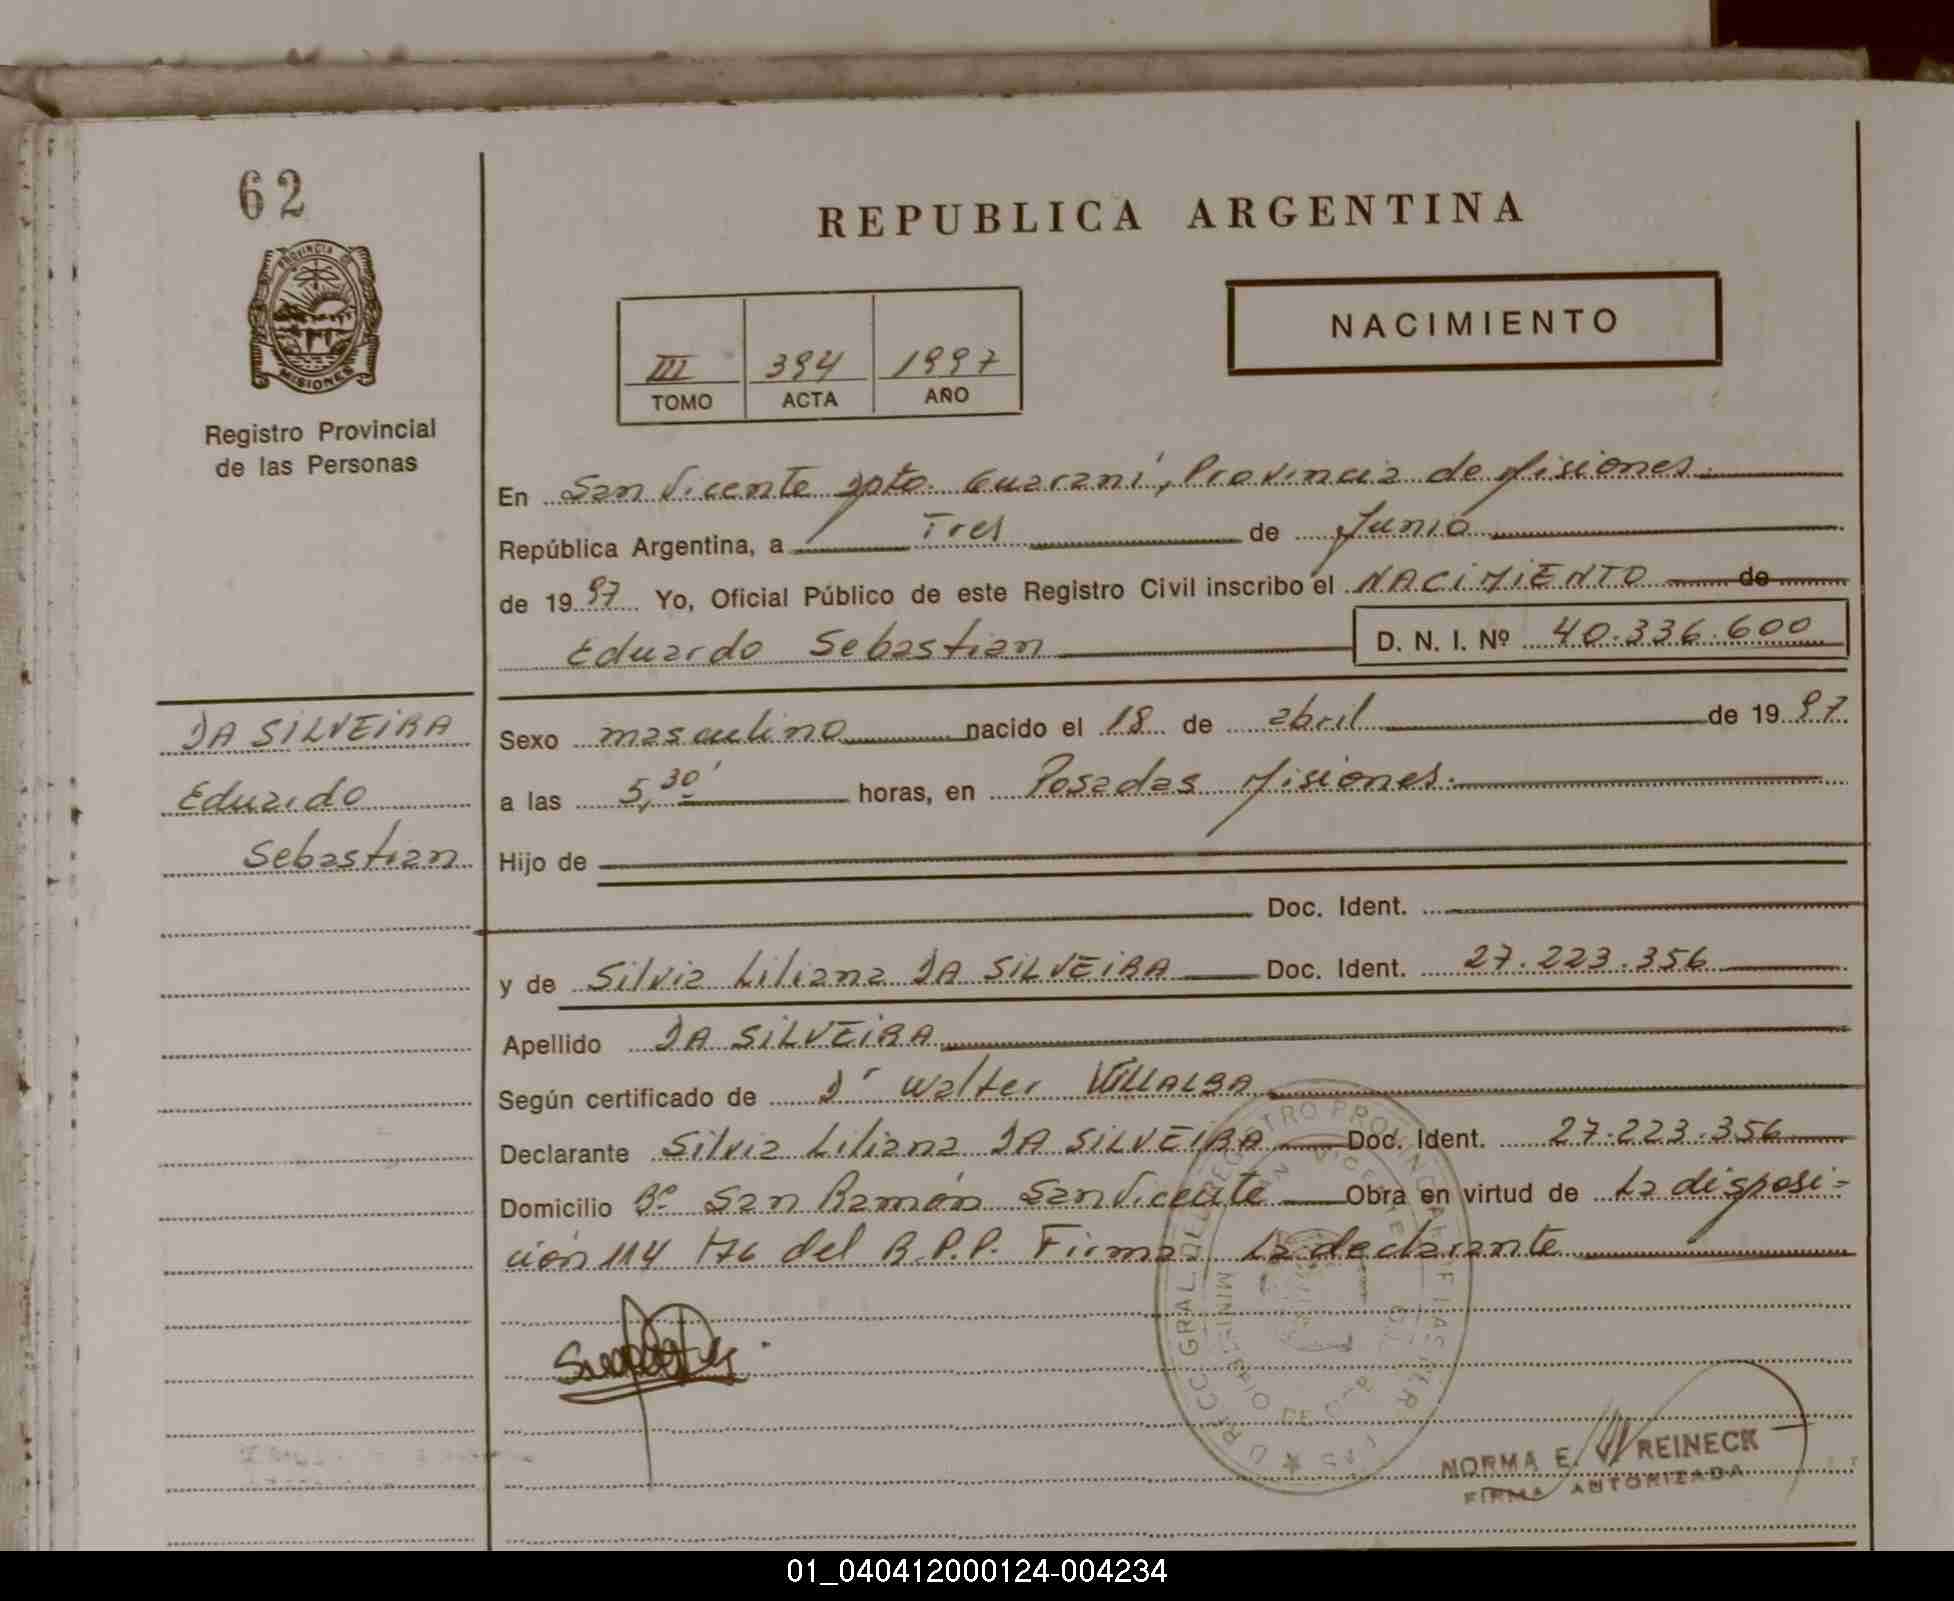 62
PROVINCIA DE
MISIONES
Registro Provincial
de las Personas
REPUBLICA ARGENTINA
III 394 1997
TOMO ACTA AÑO
NACIMIENTO
En San Vicente Dpto. Guaraní, Provincia de Misiones.
República Argentina, a Tres de Junio
de 1997 Yo, Oficial Público de este Registro Civil inscribo el NACIMIENTO de
Eduardo Sebastian D. N. I. Nº 40.336.600
DA SILVEIRA
Eduardo
Sebastian
Sexo masculino nacido el 18 de abril de 1997
a las 5,30' horas, en Posadas Misiones.
Hijo de
Doc. Ident.
y de Silvia Liliana DA SILVEIRA Doc. Ident. 27.223.356
Apellido DA SILVEIRA
Según certificado de Dr Walter VILLALBA
Declarante Silvia Liliana DA SILVEIRA Doc. Ident. 27.223.356
Domicilio Bº San Ramón San Vicente Obra en virtud de La disposi=
ción 114/76 del R.P.P. Firma La declarante
NORMA E. REINECK
FIRMA AUTORIZADA
01_040412000124-004234